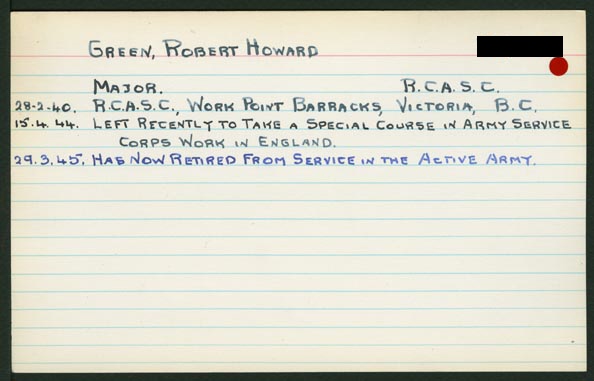 GREEN, ROBERT HOWARD
MAJOR. R.C.A.S.C.
28-2-40. R.C.A.S.C., WORK POINT BARRACKS, VICTORIA, B.C.
15.4.44. LEFT RECENTLY TO TAKE A SPECIAL COURSE IN ARMY SERVICE
CORPS WORK IN ENGLAND.
29.3.45. HAS NOW RETIRED FROM SERVICE IN THE ACTIVE ARMY.